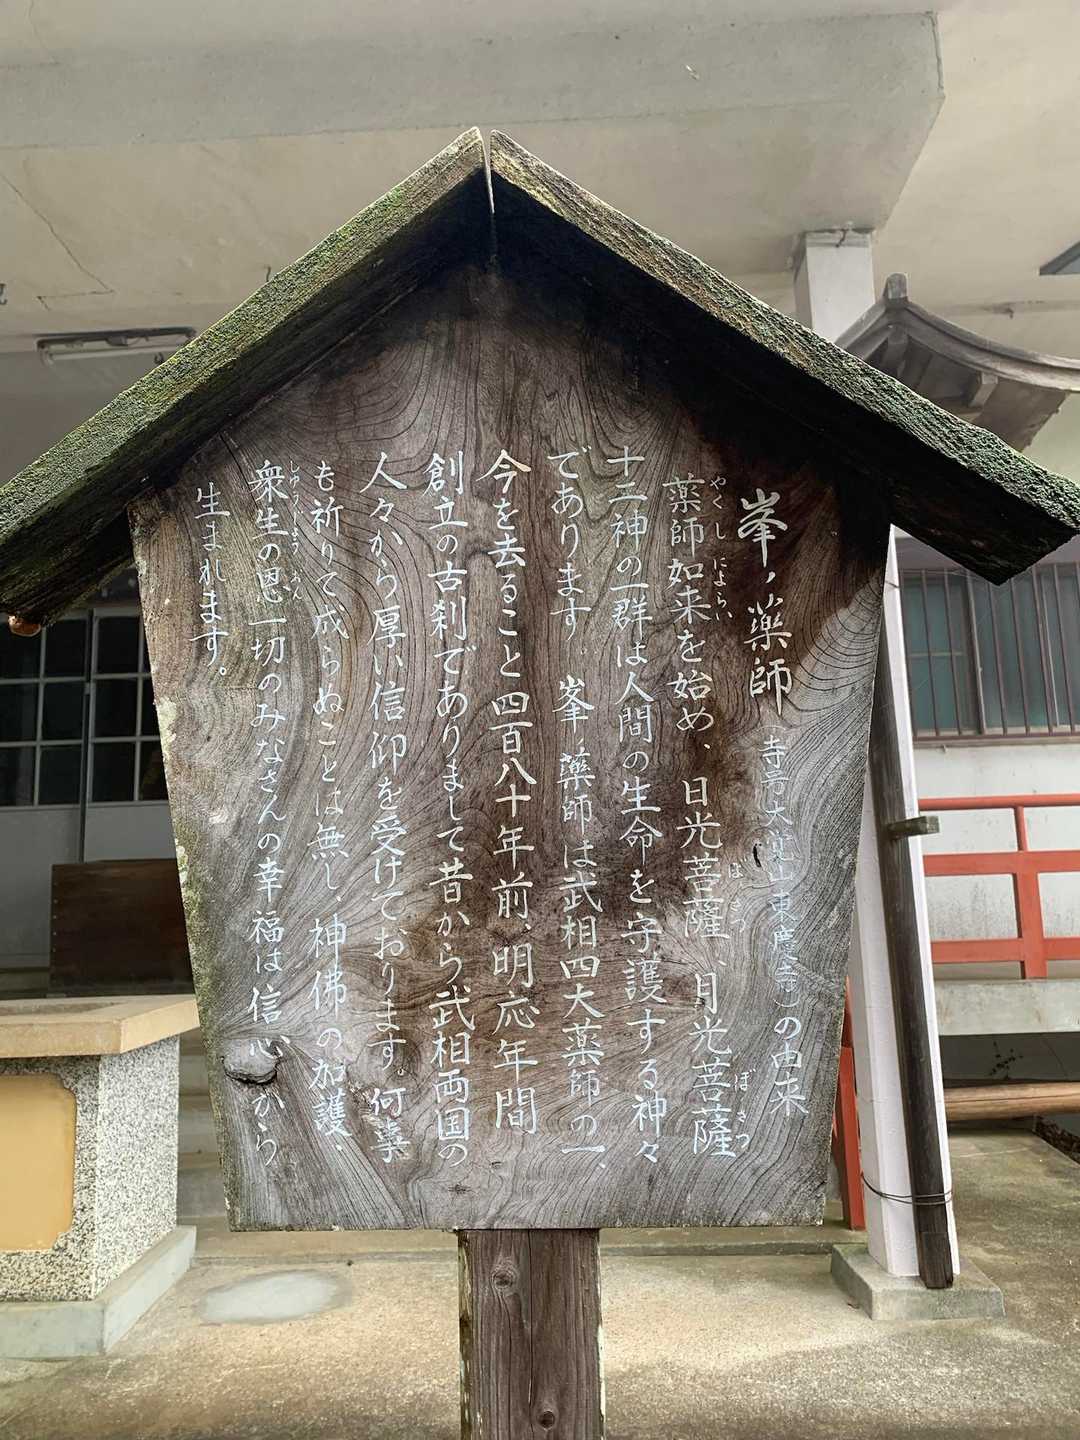 峯ノ薬師（寺号大覚山東慶寺）の由来
薬師如来を始め、日光菩薩、月光菩薩
やくしにょらい
ばさつ
ぼさつ
十二神の一群は人間の生命を守護する神々
であります　峯ノ薬師は武相四大薬師の一、
今を去ること四百八十年前、明応年間
創立の古刹でありまして昔から武相両国の
人々から厚い信仰を受けております。何事
も祈りて成らぬことは無し、神佛の加護、
衆生の恩一切のみなさんの幸福は信心から
しゅうじょう
おん
生まれます。